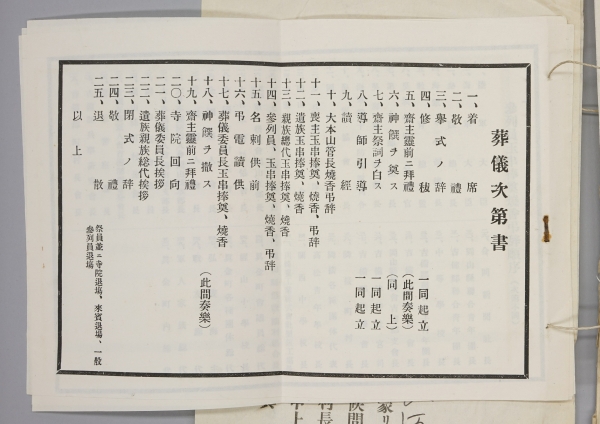 葬儀次第書
一、着席
二、敬禮
三、擧式ノ辞
四、修祓 一同起立
五、齋主靈前ニ拜禮 (此間奏樂)
六、神饌ヲ奠ス (同上)
七、齋主祭詞ヲ白ス 一同起立
八、導師引導 一同起立
九、讀經
十、大本山管長燒香弔辞
十一、喪主玉串捧奠、燒香、弔辞
十二、遺族玉串捧奠、燒香
十三、親族總代玉串捧奠、燒香
十四、參列員、玉串捧奠、燒香、弔辞
十五、名刺供前
十六、弔電讀供
十七、葬儀委員長玉串捧奠、燒香
十八、神饌ヲ撤ス (此間奏樂)
十九、齋主靈前ニ拜禮
二〇、寺院回向
二一、葬儀委員長挨拶
二二、遺族親族総代挨拶
二三、閉式ノ辞
二四、敬禮
二五、退散 祭員並ニ寺院退場、來賓退場、一般
參列員退場
以上